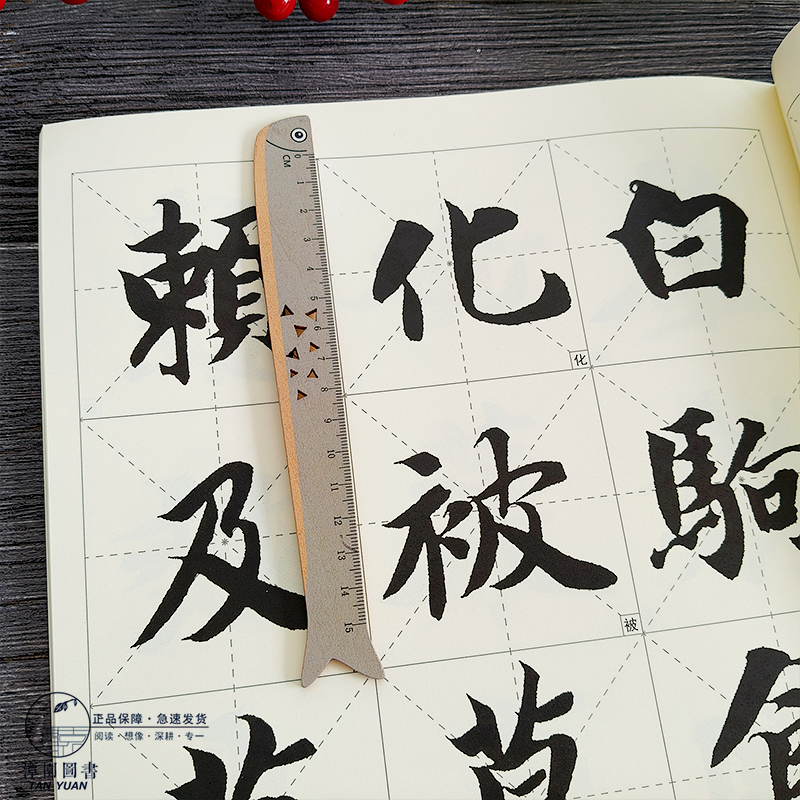 白駒食
化被草
賴及
化
被
CM
0 1 2 3 4 5 6 7 8 9 10 11 12 13 14 15
正品保障·急速发货
阅读·想像·深耕·专一
園圖書
TAN YUAN